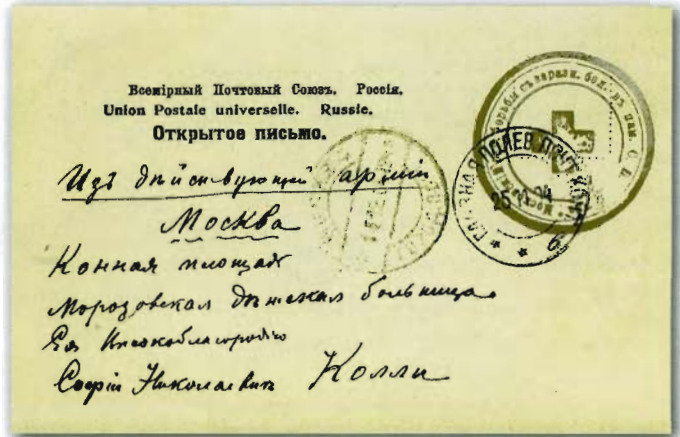 Всемірный Почтовый Союзъ. Россія.
Union Postale universelle. Russie.
Открытое письмо.
Изъ дѣйствующей арміи
Москва
Конная площадь
Морозовская дѣтская больница
Ея Высокоблагородію
Софіи Николаевнѣ Колли
борьбы съ зараз. бол. въ пам.
ПОЛЕВ. ПОЧТ.
25 04
6